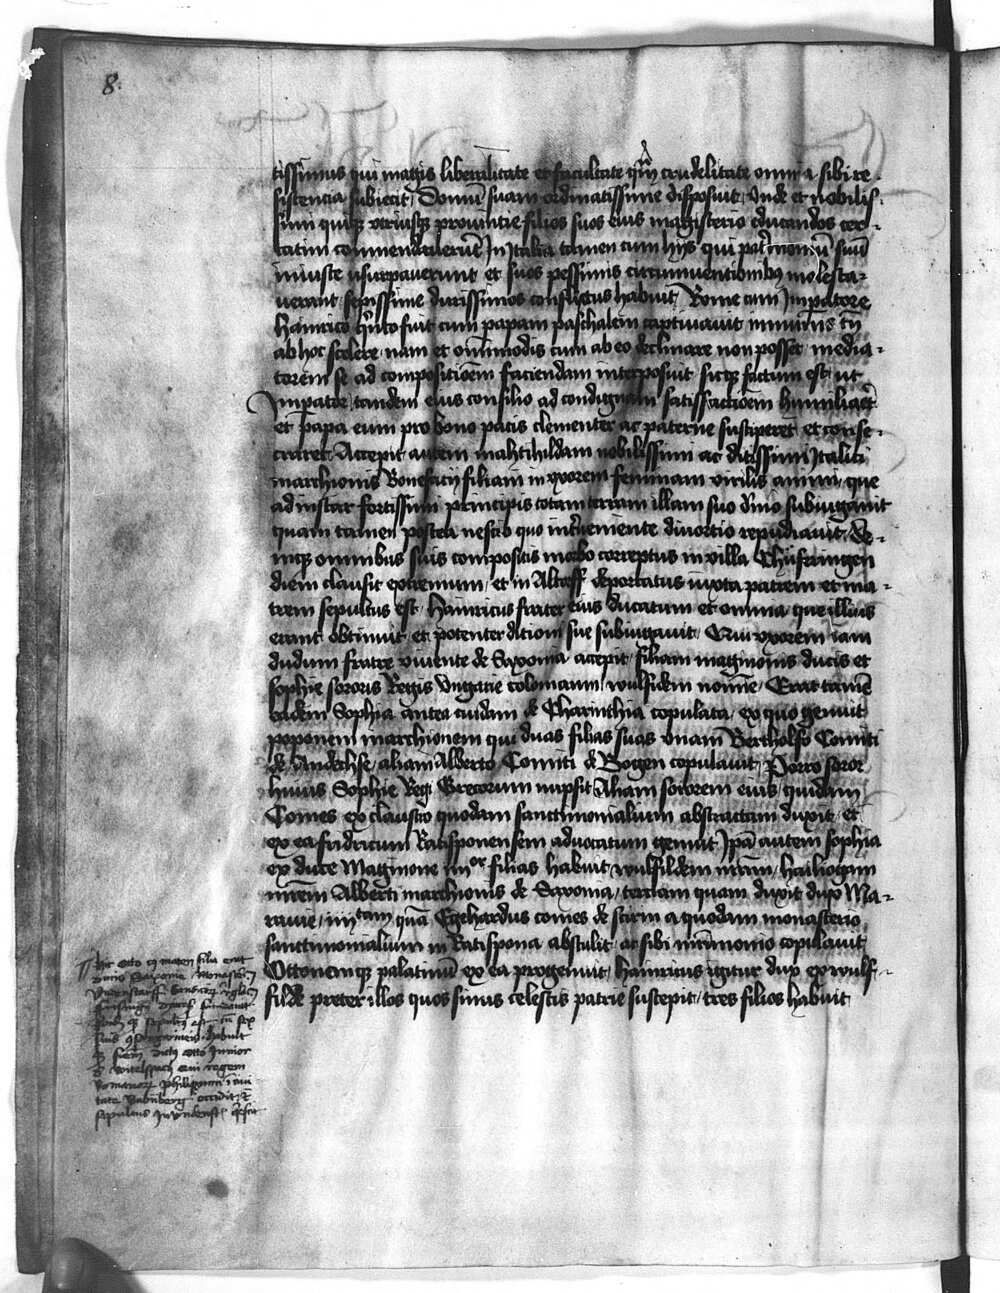 8
tissimus qui magis liberalitate et facultate qm̄ crudelitate omnia sibi re
sistencia subiecit / Domū suam ordinatissime disposuit / Vnde et nobilis
simi quiqȝ vtriusqȝ prouintie filios suos eius magisterio educandos cer
tatim commendauerūt In Italia tamen cum hijs qui pat̄monīu suū
iniuste vsurpauerunt et suos pessimis circumuentionibus molesta
uerant sepissime durissimos conflictus habuit / Rome cum Impatore
Hainrico q̄nto fuit cum papam paschalem captiuauit immunis tn̄
ab hoc scelere / nam et om̄imodis cum ab eo declinare non posset media
torem se ad compositiōem faciendam interposuit sicqȝ factum est ut
Impator tandem eius consilio ad condignam satisfactiōem humiliaret̄
et papa eum pro bono pacis clementer ac paterne susciperet et conse
craret Accepit autem mahthildam nobilissimi ac ditissimi Italici
marchionis Bonefacij filiam in vxorem feminam virilis animi / que
ad instar fortissimi principis totam terram illam suo dn̄io subiugauit
quam tamen postea nescio quo interueniente diuortio repudiauit / De
niqȝ omnibus suis compositis morbo correptus in villa Chüfringen
diem clausit extremum / et in Altorff deportatus iuxta patrem et ma
trem sepultus est / Hainricus frater eius ducatum et omnia que illius
erant obtinuit et potenter ditioni sue subiugauit / Qui vxorem iam
dudum fratre viuente de Saxonia accepit / filiam magnionis ducis et
sophie sororis Regis Vngarie colomanni / wulfildem nomīe / Erat tamē
eadem Sophia antea cuidam de Charinthia copulata / ex quo genuit
poponem marchionem qui duas filias suas vnam Bertholfo Comiti
de Andechse / aliam Alberto Comiti de Bogen copulauit / Porro soror
huius Sophie Regi Grecorum nupsit Aliam sororem eius quidam
Comes ex claustro quodam sanctimonialium abstractam duxit / et
ex ea fridricum Ratisponensem aduocatum genuit Ip̄a autem sophia
ex duce Magnione iiijor filias habuit / wulfildem nr̄am / hailicgam
mr̄em Alberti marchionis de Saxonia / terciam quam duxit dux Ma
rauie / iiijtam quā Egehardus comes de scirin a quodam monasterio
sanctimonialium in Ratispona abstulit ac sibi mr̄imonio copulauit
Ottonemqȝ palatinū ex ea progenuit / Hainricus igitur dux ex wulf
filde preter illos quos sinus celestis patrie suscepit / tres filios habuit
Hic Otto cȝ mater filia erat
ducis Saxonie Monasteriū
fundauit
sepultus est cū
suis progenitoribus habuit
filiū dictū Otto Junior
de Witelspach qui regem
Romanorȝ Philippum ī ciui
tate Babinberg occidit et
sepultus In